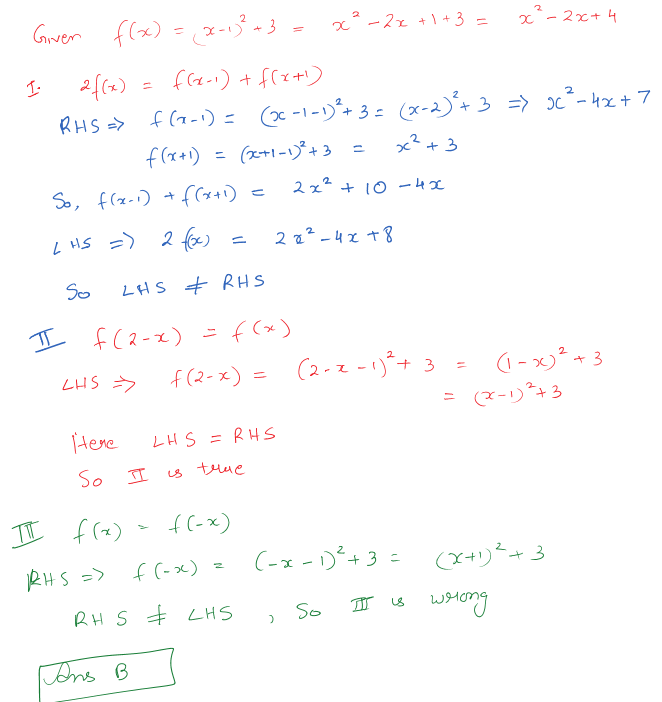 Given f(x) = (x-1)² + 3 = x² - 2x + 1 + 3 = x² - 2x + 4
I. 2f(x) = f(x-1) + f(x+1)
RHS ⇒ f(x-1) = (x-1-1)² + 3 = (x-2)² + 3 ⇒ x² - 4x + 7
f(x+1) = (x+1-1)² + 3 = x² + 3
So, f(x-1) + f(x+1) = 2x² + 10 - 4x
LHS ⇒ 2f(x) = 2x² - 4x + 8
So LHS ≠ RHS
II f(2-x) = f(x)
LHS ⇒ f(2-x) = (2-x-1)² + 3 = (1-x)² + 3
= (x-1)² + 3
Here LHS = RHS
So II is true
III f(x) = f(-x)
RHS ⇒ f(-x) = (-x-1)² + 3 = (x+1)² + 3
RHS ≠ LHS , So III is wrong
Ans B